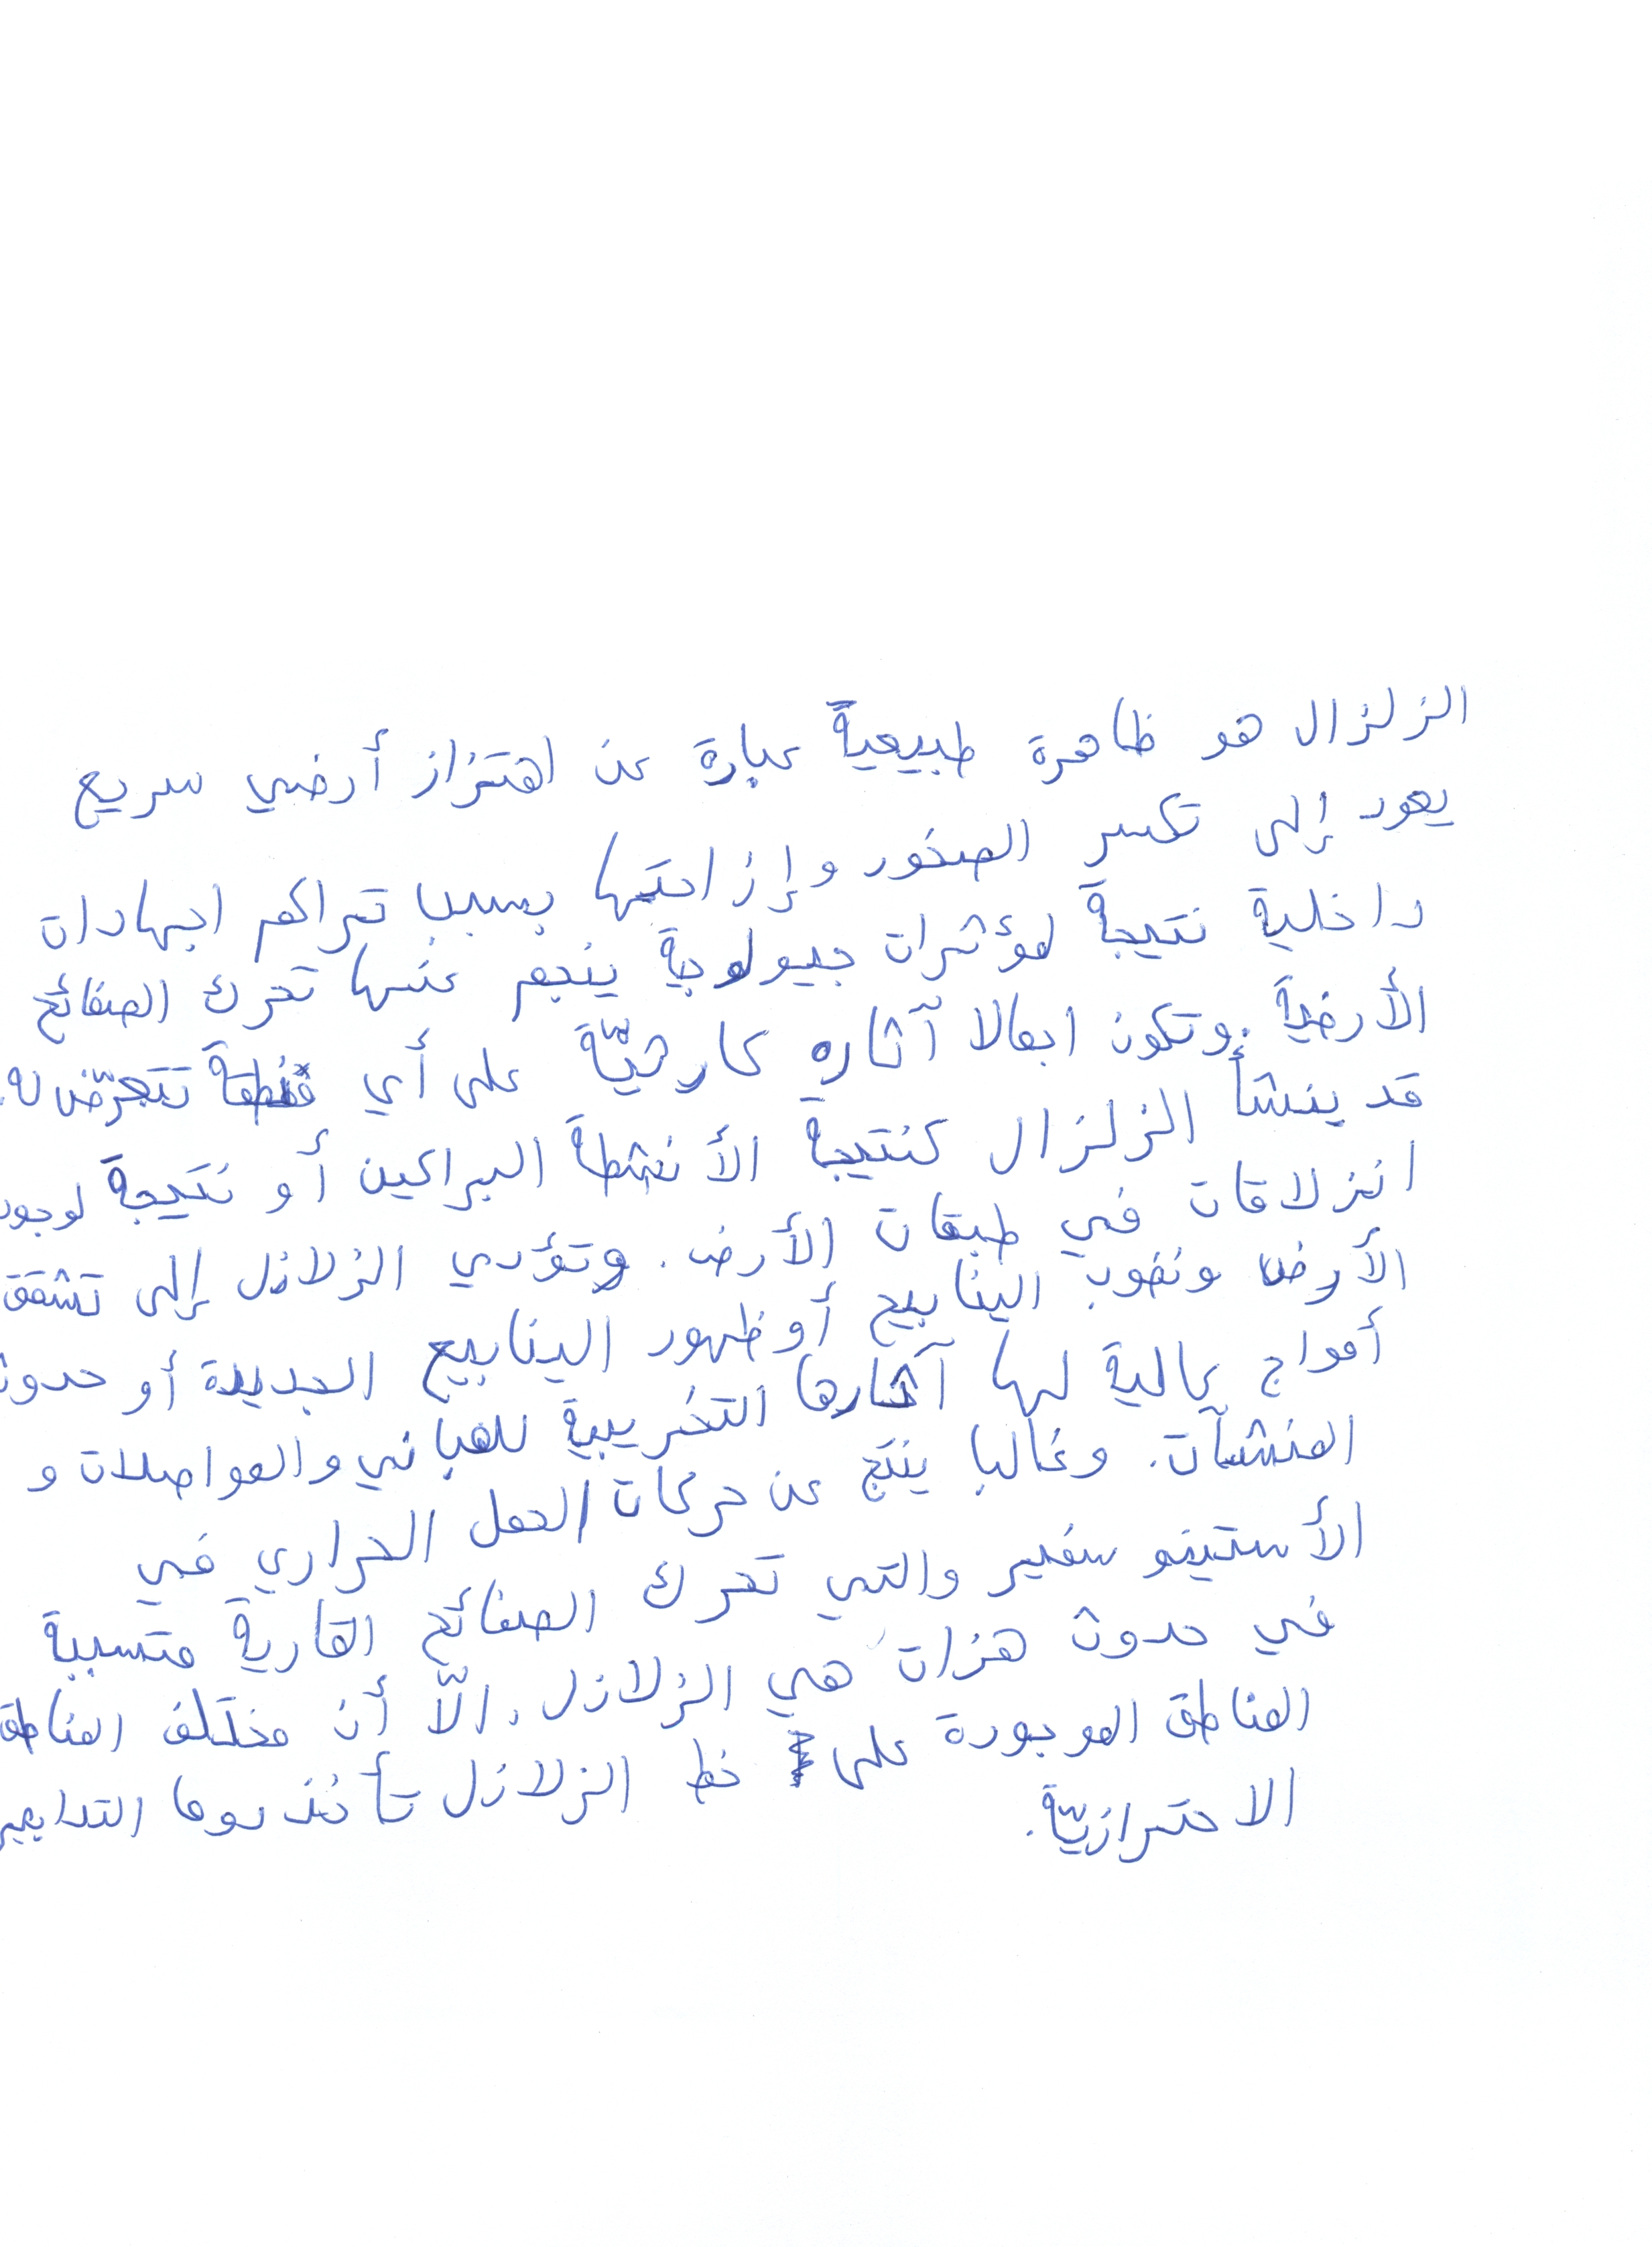 الزلزال هو ظاهرة طبيعية عبارة عن اهتزاز أرضي سريع
يعود إلى تكسر الصخور وإزاحتها بسبب تراكم اجهادات
داخلية نتيجة لمؤثرات جيولوجية ينجم عنها تحرك الصفائح
الأرضية. وتكون اجمالا آثاره كارثيّة على أي منطقة تتعرّض له.
قد ينشأ الزلزال كنتيجة الأنشطة البراكين أو نتيجة لوجود
انزلاقات في طبقات الأرض. وتؤدي الزلازل إلى تشقق
الأرض ونضوب الينابيع أو ظهور الينابيع الجديدة أو حدوث
أمواج عالية لها آثارها التخريبية للمباني والمواصلات و
المنشآت. وغالبا ينتج عن حركات الحمل الحراري في
الأستينو سفير والتي تحرك الصفائح القارية متسببة
في حدوث هزات هي الزلازل. الّا أن مختلف المناطق
المناطق الموجودة على خط الزلازل تأخذ دوما التدابير
الاحترازيّة.